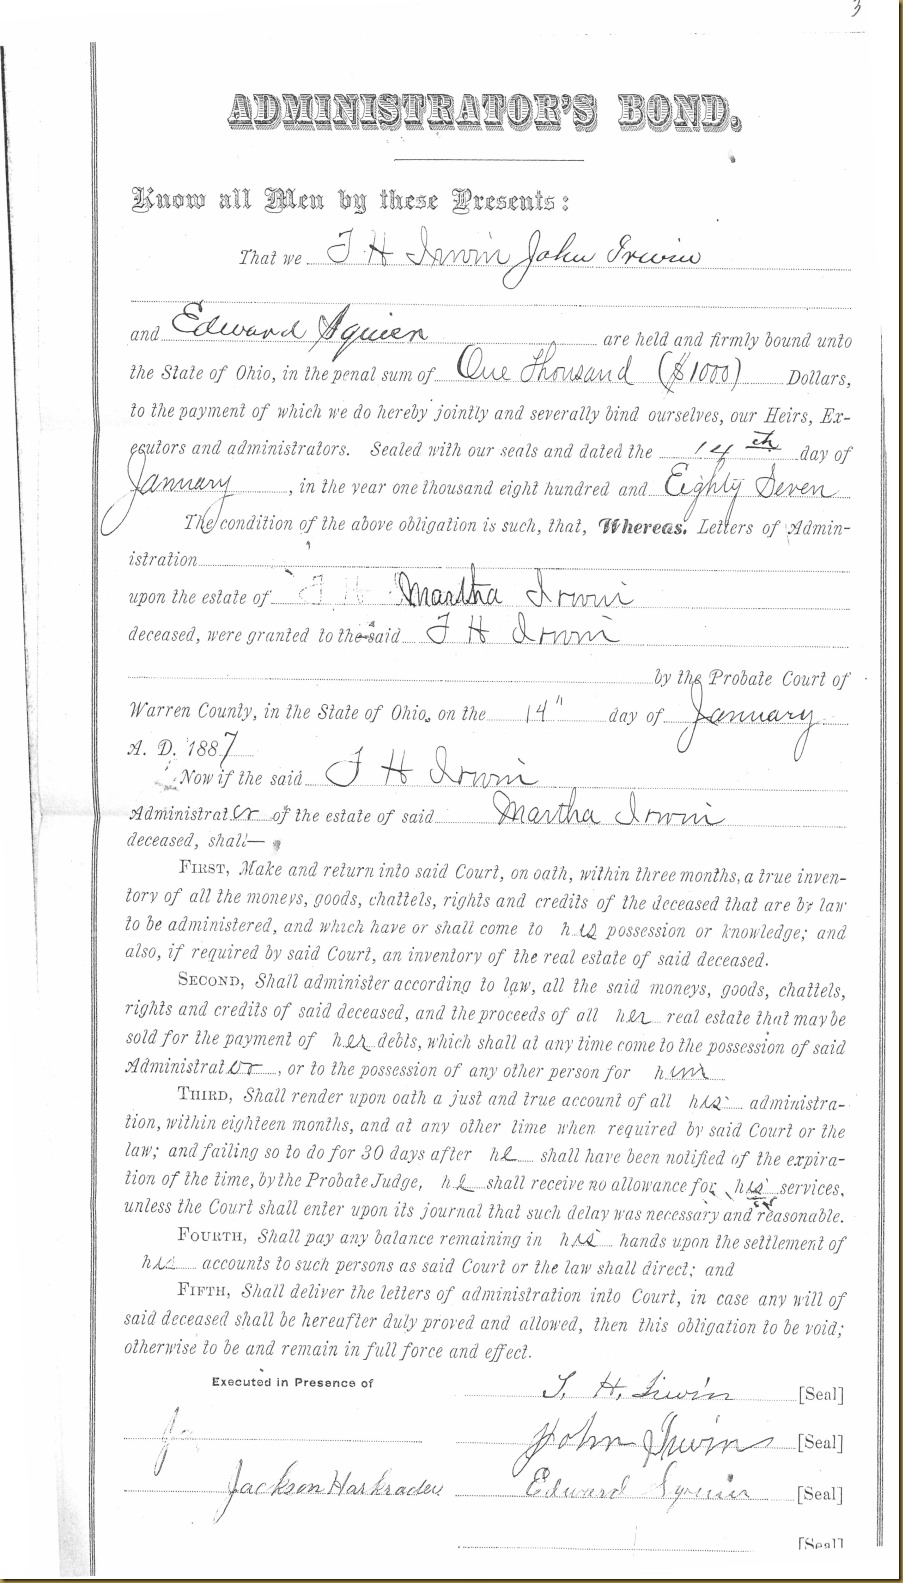 3
ADMINISTRATOR'S BOND.
Know all Men by these Presents:
That we T H Irwin John Irwin
and Edward Squier are held and firmly bound unto
the State of Ohio, in the penal sum of One Thousand ($1000) Dollars,
to the payment of which we do hereby jointly and severally bind ourselves, our Heirs, Ex-
ecutors and administrators. Sealed with our seals and dated the 14th day of
January, in the year one thousand eight hundred and Eighty Seven
The condition of the above obligation is such, that, Whereas. Letters of Admin-
istration
upon the estate of T H Martha Irwin
deceased, were granted to the said T H Irwin
by the Probate Court of
Warren County, in the State of Ohio, on the 14" day of January
A. D. 1887
Now if the said T H Irwin
Administrator of the estate of said Martha Irwin
deceased, shall—
FIRST, Make and return into said Court, on oath, within three months, a true inven-
tory of all the moneys, goods, chattels, rights and credits of the deceased that are by law
to be administered, and which have or shall come to his possession or knowledge; and
also, if required by said Court, an inventory of the real estate of said deceased.
SECOND, Shall administer according to law, all the said moneys, goods, chattels,
rights and credits of said deceased, and the proceeds of all her real estate that may be
sold for the payment of her debts, which shall at any time come to the possession of said
Administrator, or to the possession of any other person for him
THIRD, Shall render upon oath a just and true account of all his administra-
tion, within eighteen months, and at any other time when required by said Court or the
law; and failing so to do for 30 days after he shall have been notified of the expira-
tion of the time, by the Probate Judge, he shall receive no allowance for his services,
unless the Court shall enter upon its journal that such delay was necessary and reasonable.
FOURTH, Shall pay any balance remaining in his hands upon the settlement of
his accounts to such persons as said Court or the law shall direct; and
FIFTH, Shall deliver the letters of administration into Court, in case any will of
said deceased shall be hereafter duly proved and allowed, then this obligation to be void;
otherwise to be and remain in full force and effect.
Executed in Presence of
T. H. Irwin [Seal]
John Irwin [Seal]
Jackson Harkrader Edward Squier [Seal]
[Seal]